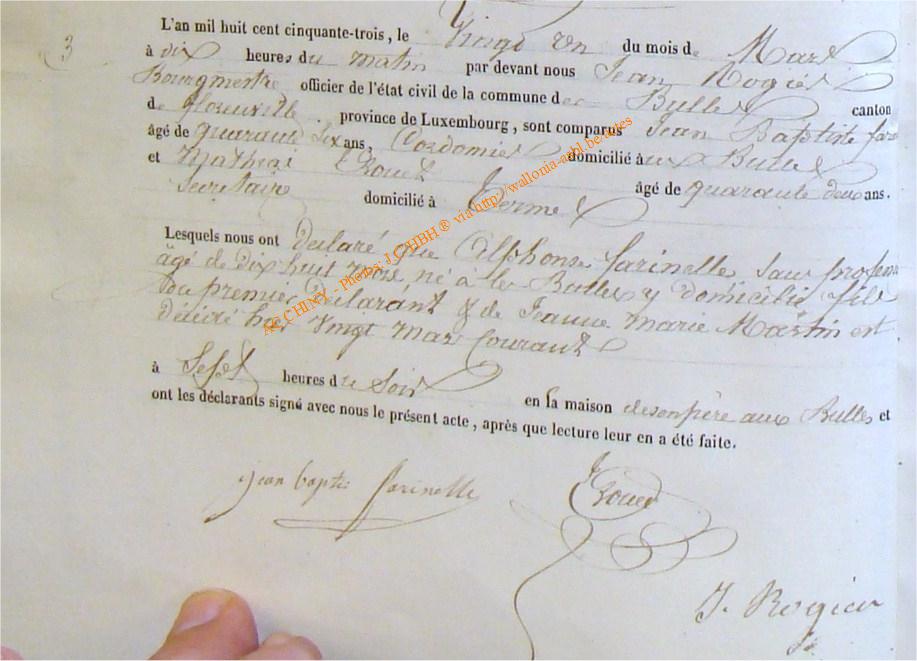 3
L'an mil huit cent cinquante-trois, le Vingt un du mois de Mars
à dix heures du matin par devant nous Jean Rogier
Bourgmestre officier de l'état civil de la commune des Bulles canton
de florenville, province de Luxembourg, sont comparus Jean Baptiste fari
âgé de quarante six ans, Cordonnier domicilié aux Bulles
et Mathias Eroued âgé de quarante deux ans.
Secretaire domicilié à Termes
Lesquels nous ont declaré que Alphonse farinelle, sans profession
âgé de dix huit mois, né à les Bulles y domicilié, fils
du premier déclarant & de Jeanne Marie Martin est
hier Vingt mars Courant
à Sept heures du Soir en la maison de son père aux Bulles et
ont les déclarants signé avec nous le présent acte, après que lecture leur en a été faite.
jean baptis farinelle
J. Rogier
ACCHINY - Photos: J.CHBH ® via http://wallonia-asbl.be/actes